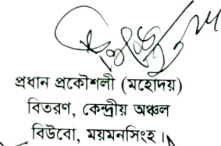 প্রধান প্রকৌশলী (মহোদয়)
বিতরণ, কেন্দ্রীয় অঞ্চল
বিউবো, ময়মনসিংহ।